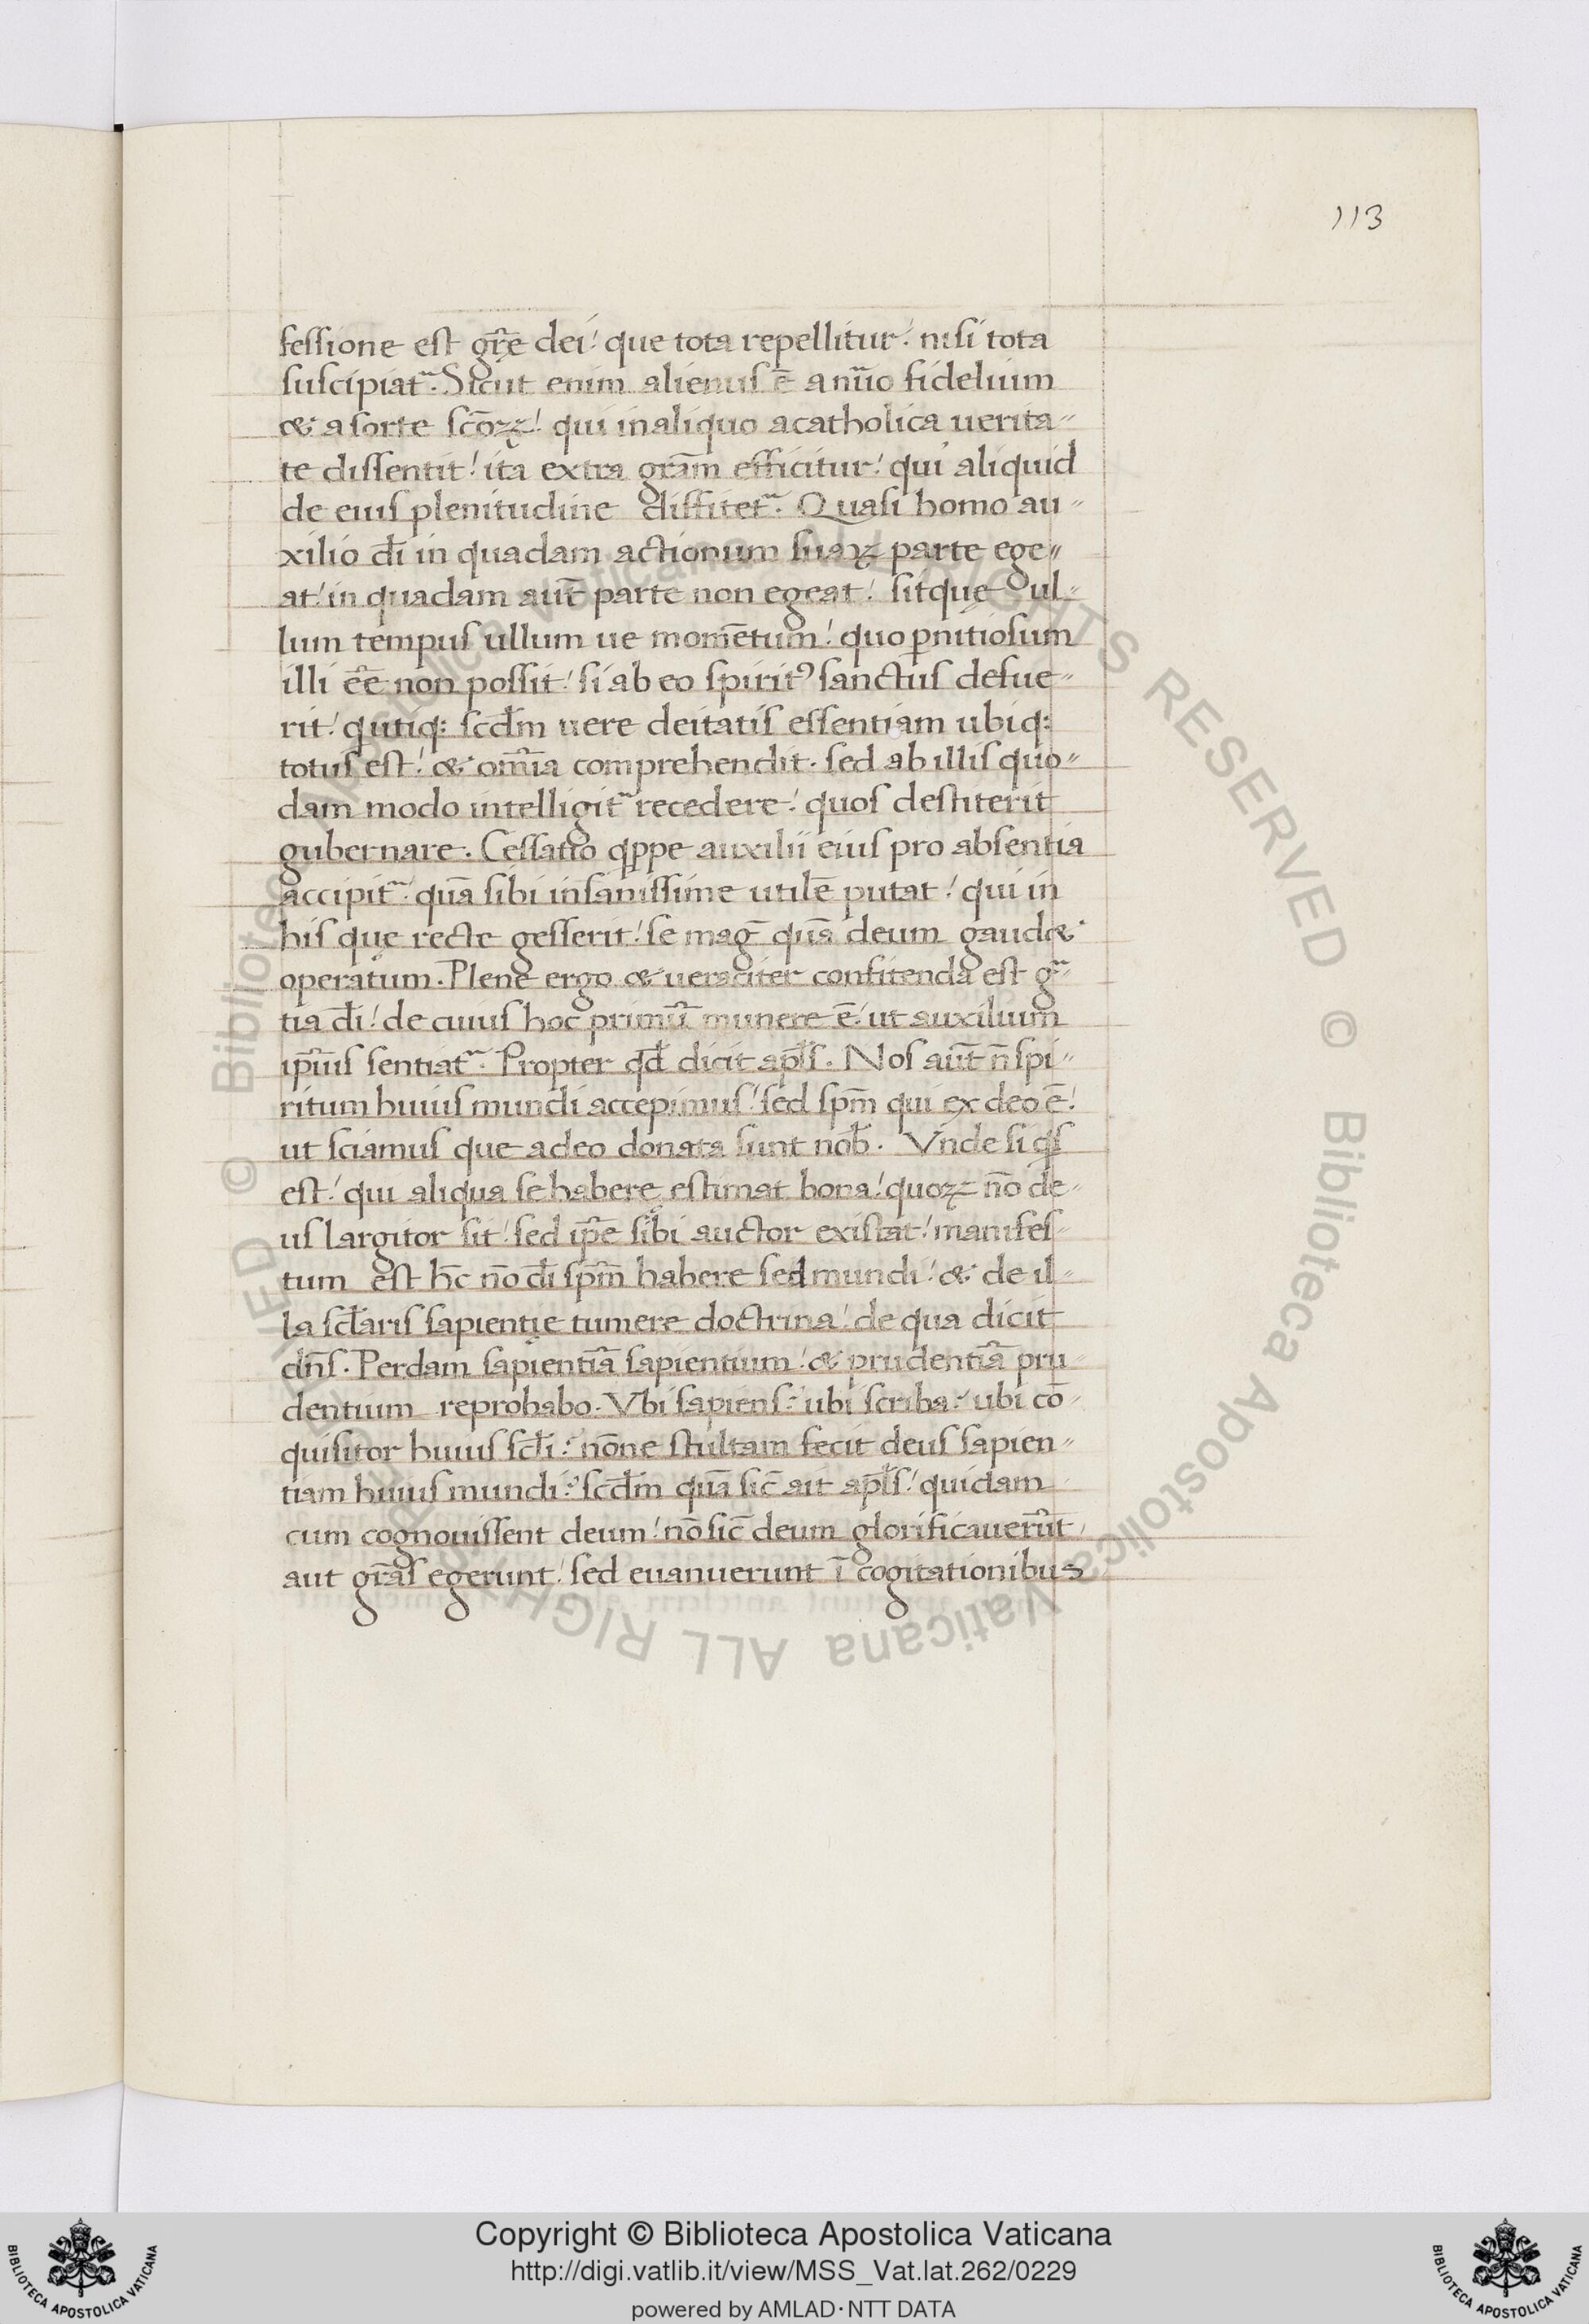 113
fessione est gr̄e dei! que tota repellitur! nisi tota
suscipiat᷑. Sicut enim alienus ē a nūo fidelium
& a sorte sc̄oꝝ! qui in aliquo a catholica uerita-
te dissentit! ita extra grām efficitur! qui aliquid
de eius plenitudine diffitet᷑. Quasi homo au-
xilio dī in quadam actionum suaꝝ parte ege-
at! in quadam aut̄ parte non egeat! sitque ul-
lum tempus ullum ue momētum! quo ꝑnitiosum
illi eē̄ non possit! si ab eo spiritꝰ sanctus defue-
rit! qui utiq: scdm̄ uere deitatis essentiam ubiq:
totus est! & om̄ia comprehendit. sed ab illis quo-
dam modo intelligit᷑ recedere! quos destiterit
gubernare. Cessatio qͥppe auxilii eius pro absentia
accipit᷑. quā sibi insanissime utilē putat! qui in
his que recte gesserit! se maḡ quā deum gaud&
operatum. Plene ergo & ueraciter confitenda est gͣ-
tia dī! de cuius hoc primū munere ē! ut auxilium
ip̄ius sentiat᷑. Propter qd̄ dicit apl̄s. Nos aut̄ n̄ spi-
ritum huius mundi accepimus! sed sp̄m qui ex deo ē!
ut sciamus que a deo donata sunt nob̄. Vnde si qͥs
est! qui aliqua se habere ęstimat bona! quoꝝ nō de-
us largitor sit! sed ip̄e sibi auctor existat! manifes-
tum est hc̄ nō dī sp̄m habere sed mundi! & de il-
la scl̄aris sapientię tumere doctrina! de qua dicit
dn̄s. Perdam sapientiā sapientium! & prudentiā pru-
dentium reprobabo. Vbi sapiens? ubi scriba? ubi cō-
quisitor huius scl̄i? nōne stultam fecit deus sapien-
tiam huius mundi? scdm̄ quā sic̄ ait apl̄s! quidam
cum cognouissent deum! nō sic̄ deum glorificauerūt,
aut grās egerunt! sed euanuerunt ī cogitationibus
© Biblioteca Apostolica Vaticana ALL RIGHTS RESERVED © Biblioteca Apostolica Vaticana ALL RIGHTS RESERVED
Copyright © Biblioteca Apostolica Vaticana
http://digi.vatlib.it/view/MSS_Vat.lat.262/0229
powered by AMLAD·NTT DATA
BIBLIOTECA APOSTOLICA VATICANA
BIBLIOTECA APOSTOLICA VATICANA